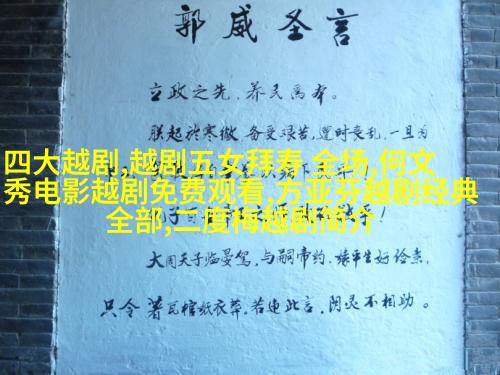 郭威圣言
立政之先,养民为本。
朕起於寒微,备受艰苦,遭时丧乱,一旦为
四大越剧,越剧五女拜寿 全场,何文
秀电影越剧免费观看,方亚芬越剧经典
全部,二度梅越剧简介
大周天子临晏驾,与嗣帝约,缘平生好俭素,
只令著瓦棺纸衣葬,若违此言,阴灵不相助。